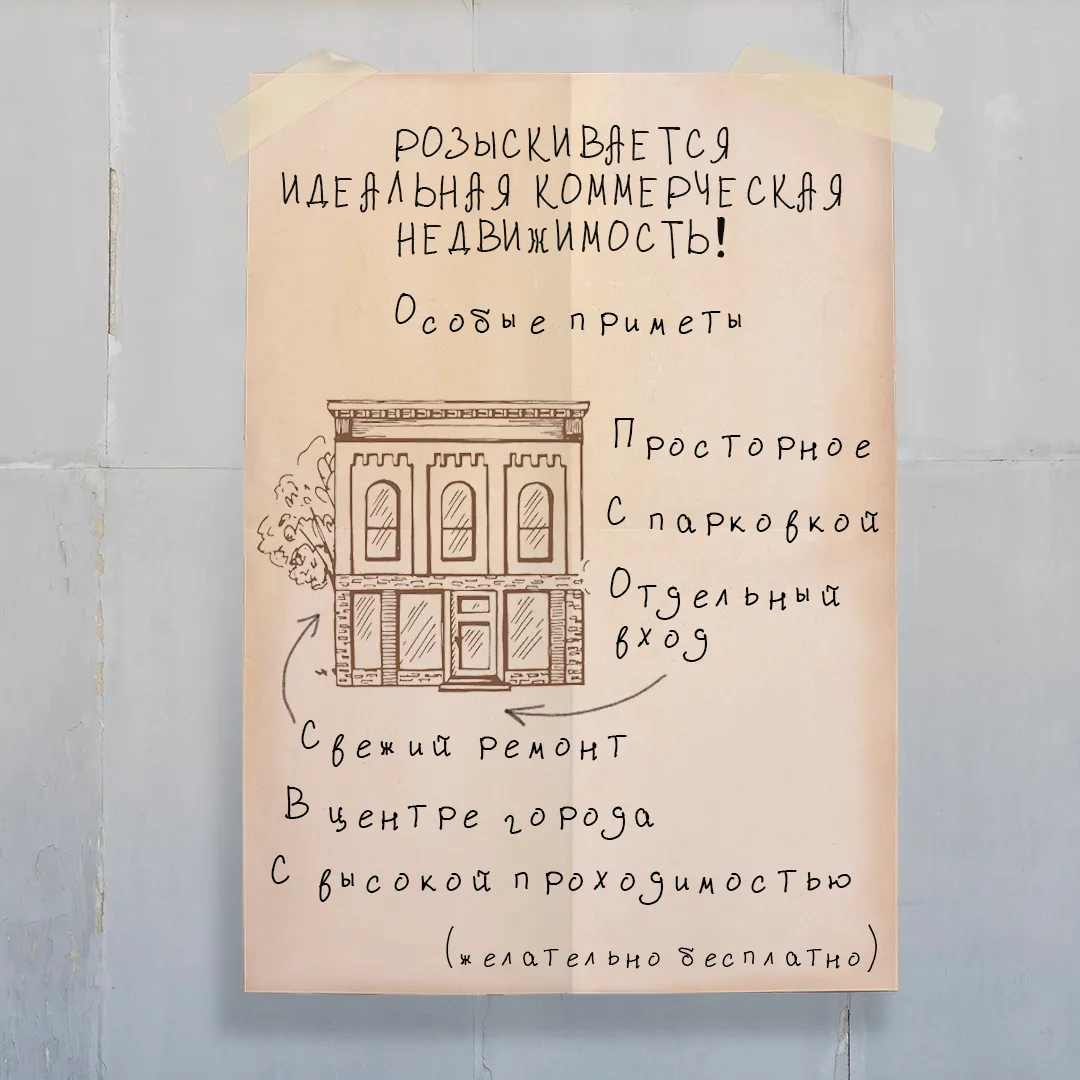 РОЗЫСКИВАЕТСЯ
ИДЕАЛЬНАЯ КОММЕРЧЕСКАЯ
НЕДВИЖИМОСТЬ!
Особые приметы
Просторное
С парковкой
Отдельный
вход
Свежий ремонт
В центре города
С высокой проходимостью
(желательно бесплатно)